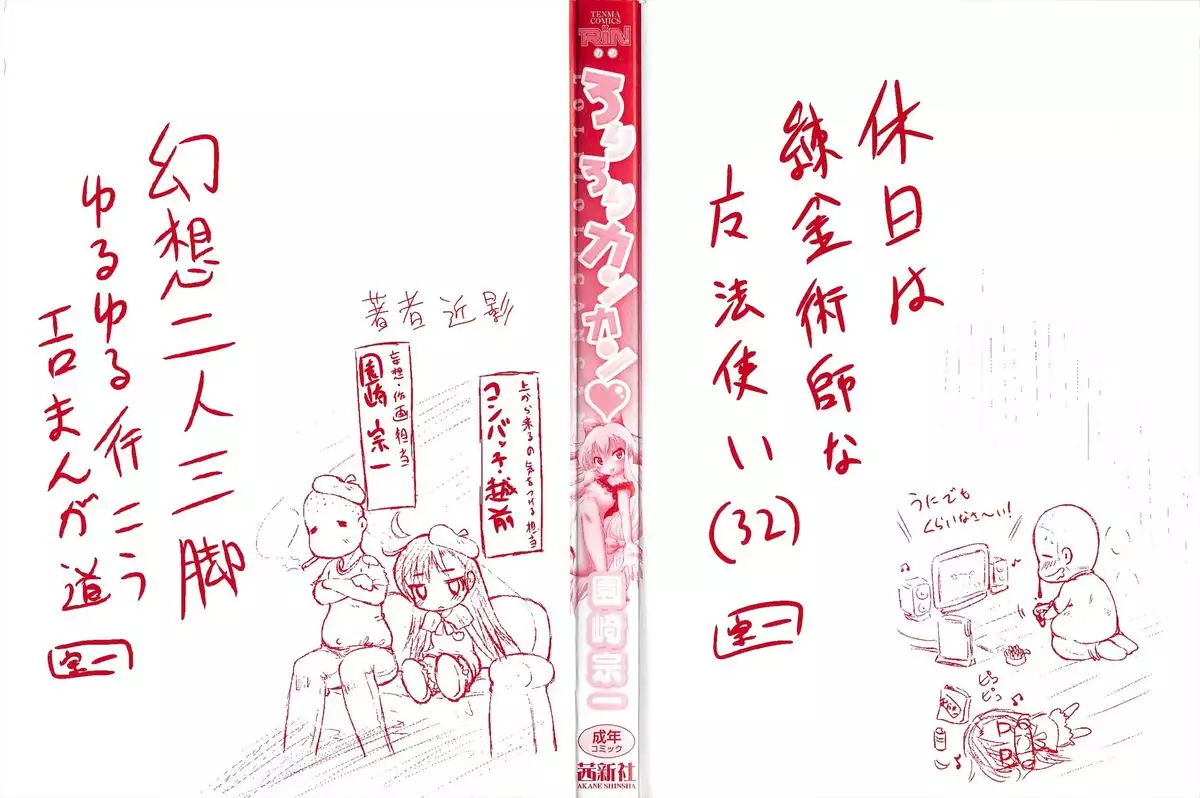 休日は
錬金術師な
友法使い(32)
宗一
うにでも
くらいなさ〜い!
ピッ
ピコ
TENMA
COMICS
RiN
リン
ろりろりカンカン♡
LOLILOLICANCAN
園崎宗一
成年
コミック
茜新社
AKANE SHINSHA
著者近影
上から来るの気をつける担当
コンバッチ・越前
妄想・作画担当
園崎宗一
幻想二人三脚
ゆるゆる行こう
エロまんが道
宗一